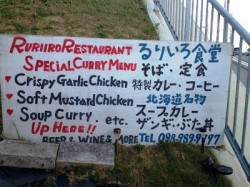 RURIIRO RESTAURANT るりいろ食堂
SPECIAL CURRY MENU そば・定食
♥ CRISPY GARLIC CHICKEN 特製カレー・コーヒー
♥ SOFT MUSTARD CHICKEN 北海道名物
♥ SOUP CURRY. etc. スープカレー
UP HERE!! ザンギ・ぶた丼
BEER & WINE & MORE TEL 098-989-